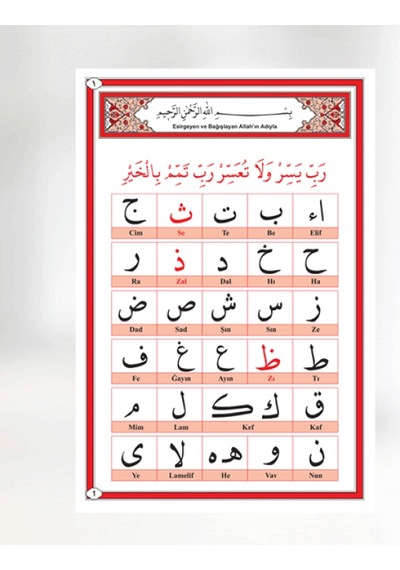 ١
بِسْمِ اللهِ الرَّحْمٰنِ الرَّحِيمِ
Esirgeyen ve Bağışlayan Allah'ın Adıyla
رَبِّ يَسِّرْ وَلَا تُعَسِّرْ رَبِّ تَمِّمْ بِالْخَيْرِ
اء ب ت ث ج
Elif Be Te Se Cim
ح خ د ذ ر
Ha Hı Dal Zal Ra
ز س ش ص ض
Ze Sın Şın Sad Dad
ط ظ ع غ ف
Tı Zı Ayın Ğayın Fe
ق ك ک ل م
Kaf Kef Lam Mim
ن و ه ه لا ى
Nun Vav He Lamelif Ye
1